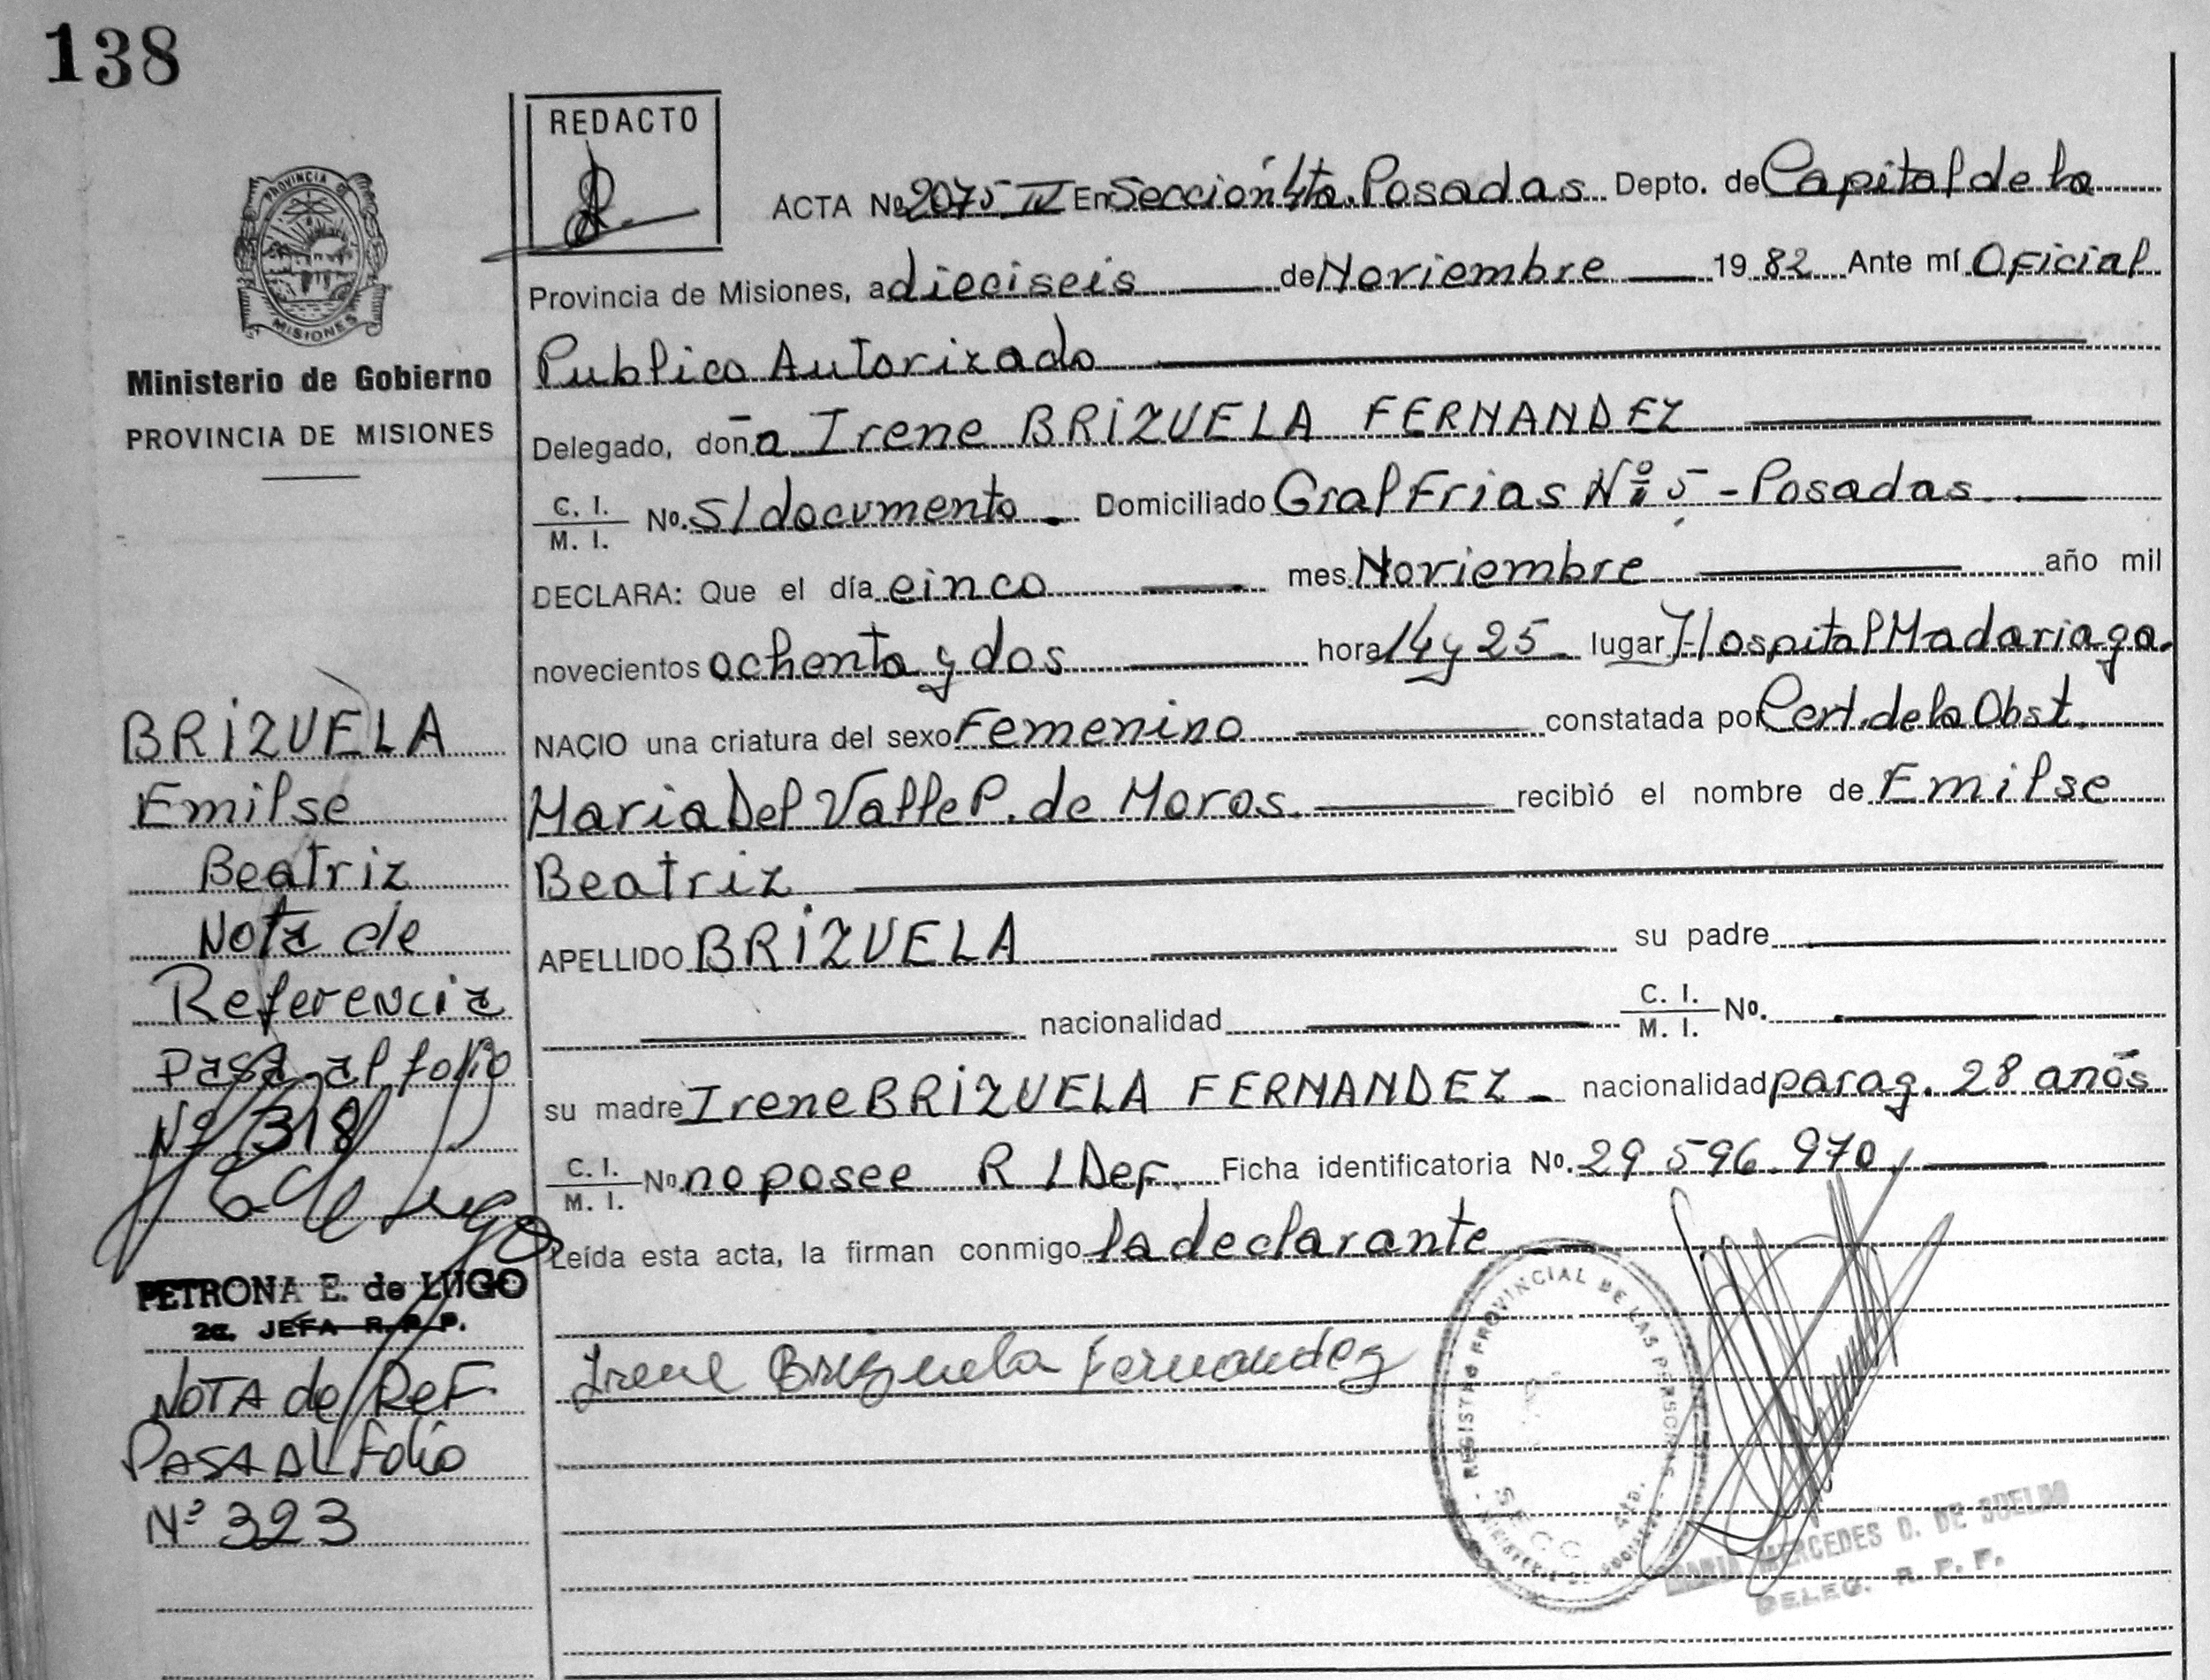 138
REDACTO
PROVINCIA D
MISIONES
Ministerio de Gobierno
PROVINCIA DE MISIONES
ACTA Nº 2075 IV En Sección 4ta. Posadas Depto. de Capital de la
Provincia de Misiones, a dieciseis de Noviembre 19 82 Ante mí Oficial
Publico Autorizado
Delegado, doña Irene BRIZUELA FERNANDEZ
C. I. / M. I. No. S/documento - Domiciliado Gral Frias Nº 5 - Posadas.
DECLARA: Que el día cinco mes Noviembre año mil
novecientos ochenta y dos hora 14 y 25 - lugar Hospital Madariaga.
NACIO una criatura del sexo Femenino constatada por Cert. de la Obst.
Maria Del Valle P. de Moros. recibió el nombre de Emilse
Beatriz
APELLIDO BRIZUELA su padre
nacionalidad C. I. / M. I. No.
su madre Irene BRIZUELA FERNANDEZ - nacionalidad parag. 28 años
C. I. / M. I. No. no posee R / Def. Ficha identificatoria No. 29.596.970,
Leída esta acta, la firman conmigo la declarante
Irene Brizuela Fernandez
REGISTRO PROVINCIAL DE LAS PERSONAS
MARIA MERCEDES D. DE
DELEG. R. P. P.
BRIZUELA
Emilse
Beatriz
Nota de
Referencia
Pasa al folio
Nº 318
PETRONA E. de LUGO
2a. JEFA R. P. P.
NOTA de ReF.
PASA AL Folio
Nº 323